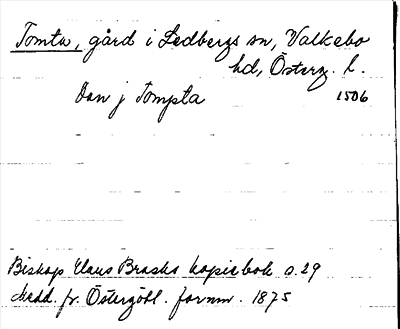 Tomta, gård i Ledbergs sn, Valkebo
hd, Österg. l.
Dan j Tompta 1506
Biskop Hans Brasks kopiebok s. 29
Medd. fr. Östergötl. fornm. 1875